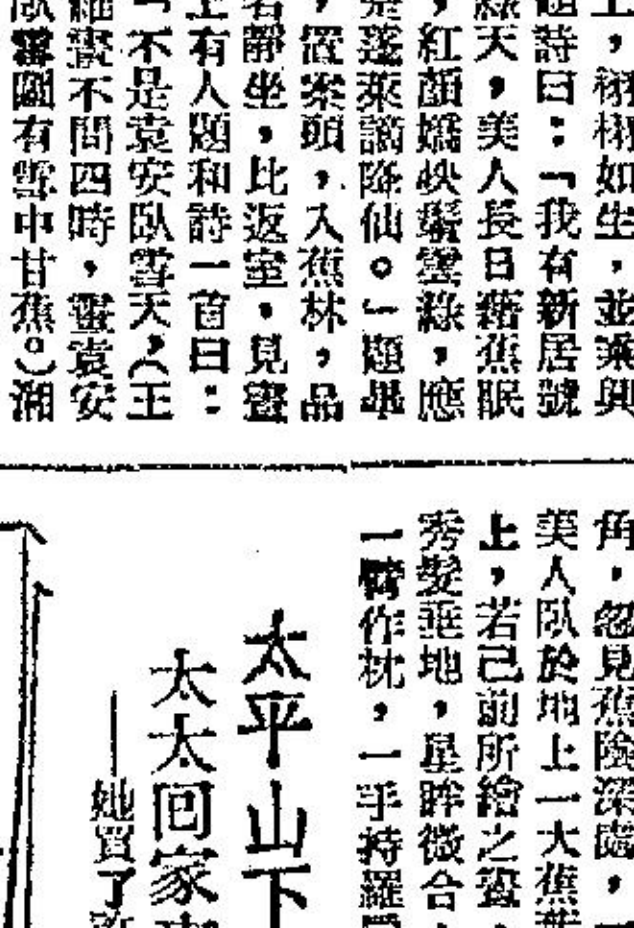 上，栩栩如生，並乘興
題詩曰：「我有新居號
綠天，美人長日藉蕉眠
，紅顏嬌映鬢雲綠，應
是蓬萊謫降仙。」題畢
，置案頭，入蕉林，品
茗靜坐，比返室，見畫
上有人題和詩一首曰：
「不是袁安臥雪天，（王
維畫不問四時，畫袁安
臥雪圖有雪中甘蕉。）湘
角，忽見蕉陰深處，一
美人臥於地上一大蕉葉
上，若己前所繪之畫，
秀髮垂地，星眸微合，
一臂作枕，一手持羅
太平山下
太太回家
——她買了許